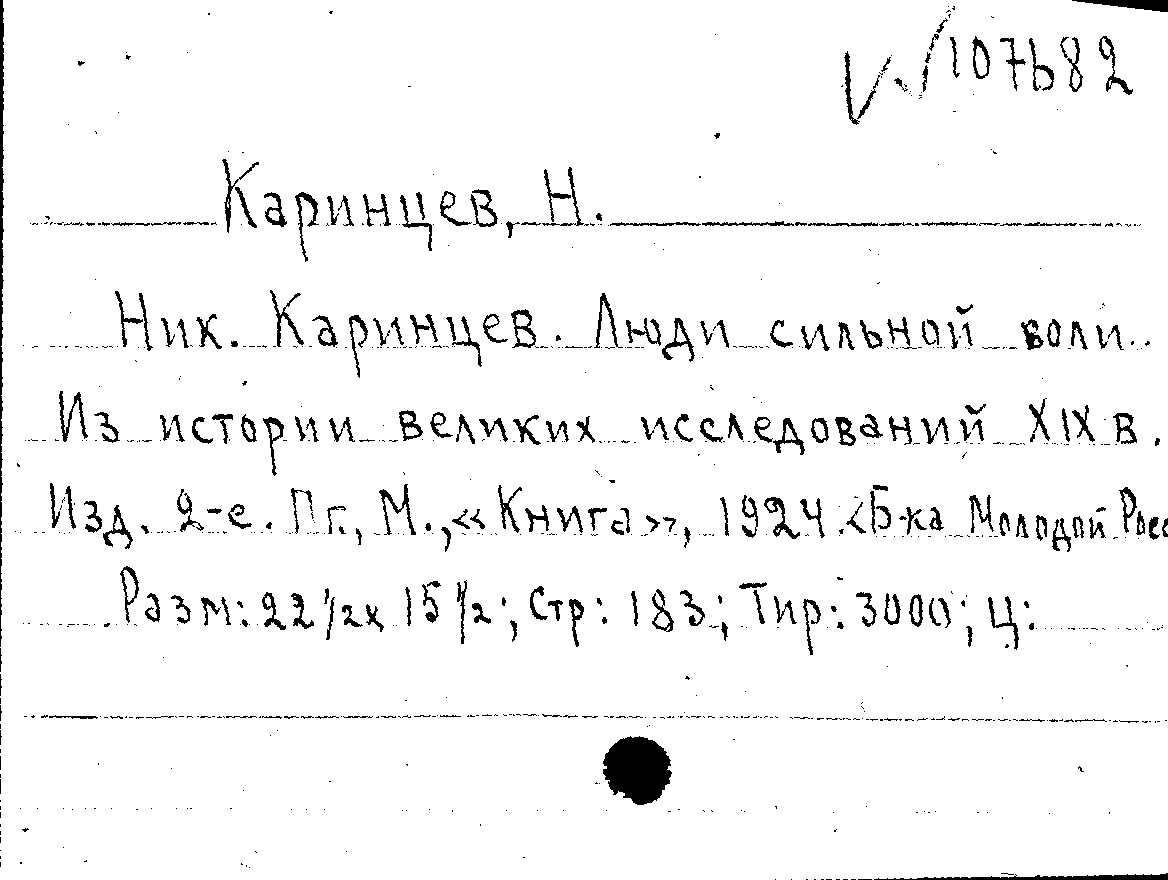 107682
Каринцев, Н.
Ник. Каринцев. Люди сильной воли.
Из истории великих исследований XIX в.
Изд. 2-е. Пг., М., «Книга», 1924. <Б-ка Молодой Росс
Разм: 22 1/2 х 15 1/2; Стр: 183; Тир: 3000; Ц: